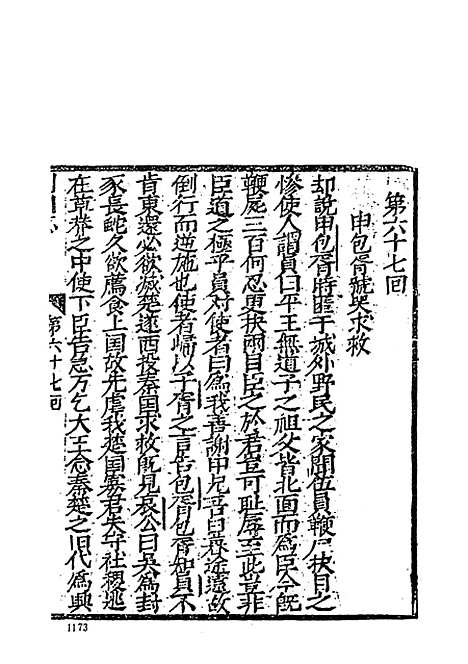 第六十七回
申包胥號哭求救
却說申包胥時匿于城外野民之家聞伍員鞭尸抉目之
慘使人謂員曰平王無道子之祖父皆北面而為臣今旣
鞭屍三百何忍更抉兩目臣之於君豈可耻辱至此豈非
臣道之極乎員对使者曰爲我善謝申兄吾日暮途遠故
倒行而逆施也使者歸以子胥之言告包胥包胥知員不
肯東還必欲滅楚遂西投秦国求救旣見哀公曰吳爲封
豕長蛇久欲薦食上国故先虐我楚国寡君失守社稷逃
在草莽之中使下臣告急万乞大王念秦楚之旧代爲興
第六十七回
1173